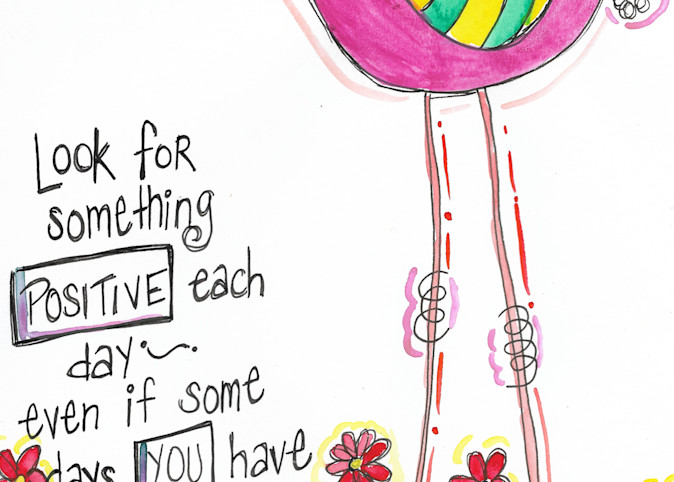 Look for
something
POSITIVE each
day~.
even if some
days YOU have